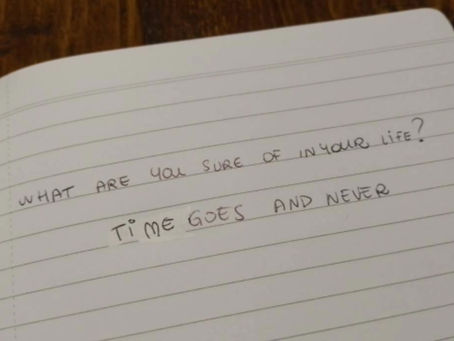 WHAT ARE YOU SURE OF IN YOUR LIFE?
TiME GOES AND NEVER